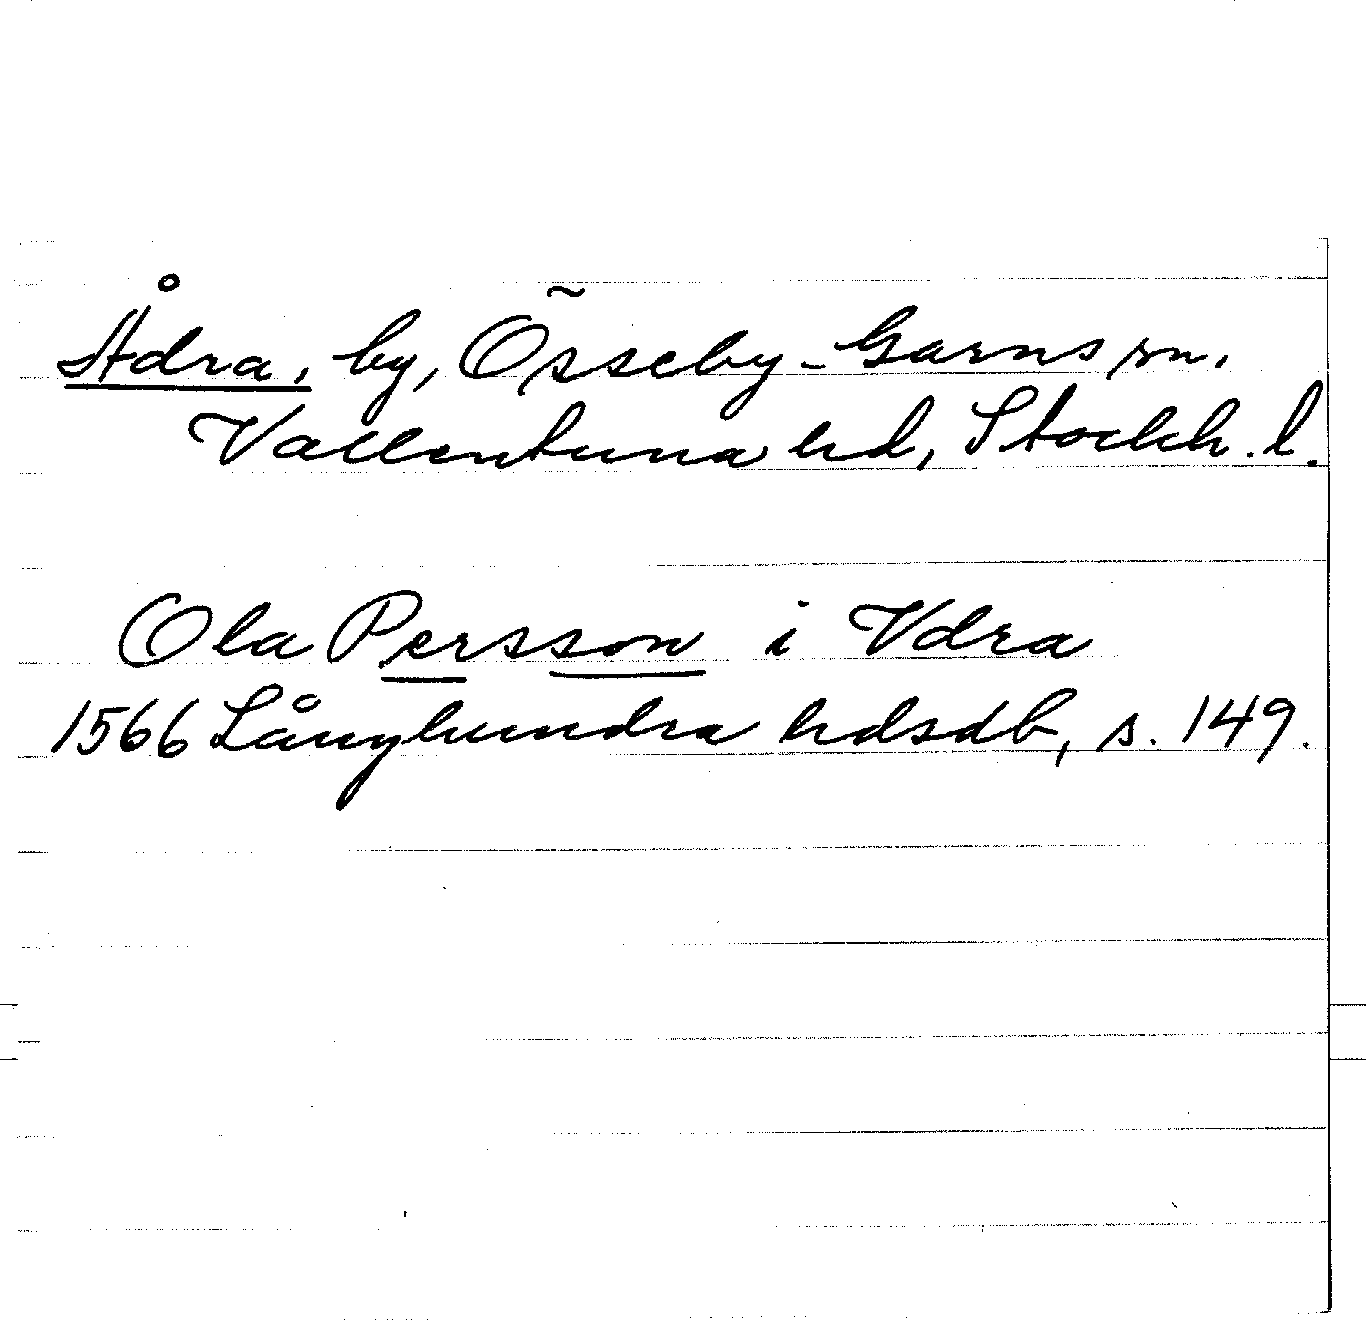 Ådra, by, Össeby-Garns sn.
Vallentuna hd, Stockh. l.
Ola Persson i Vdra
1566 Långhundra hdsdb, s. 149.